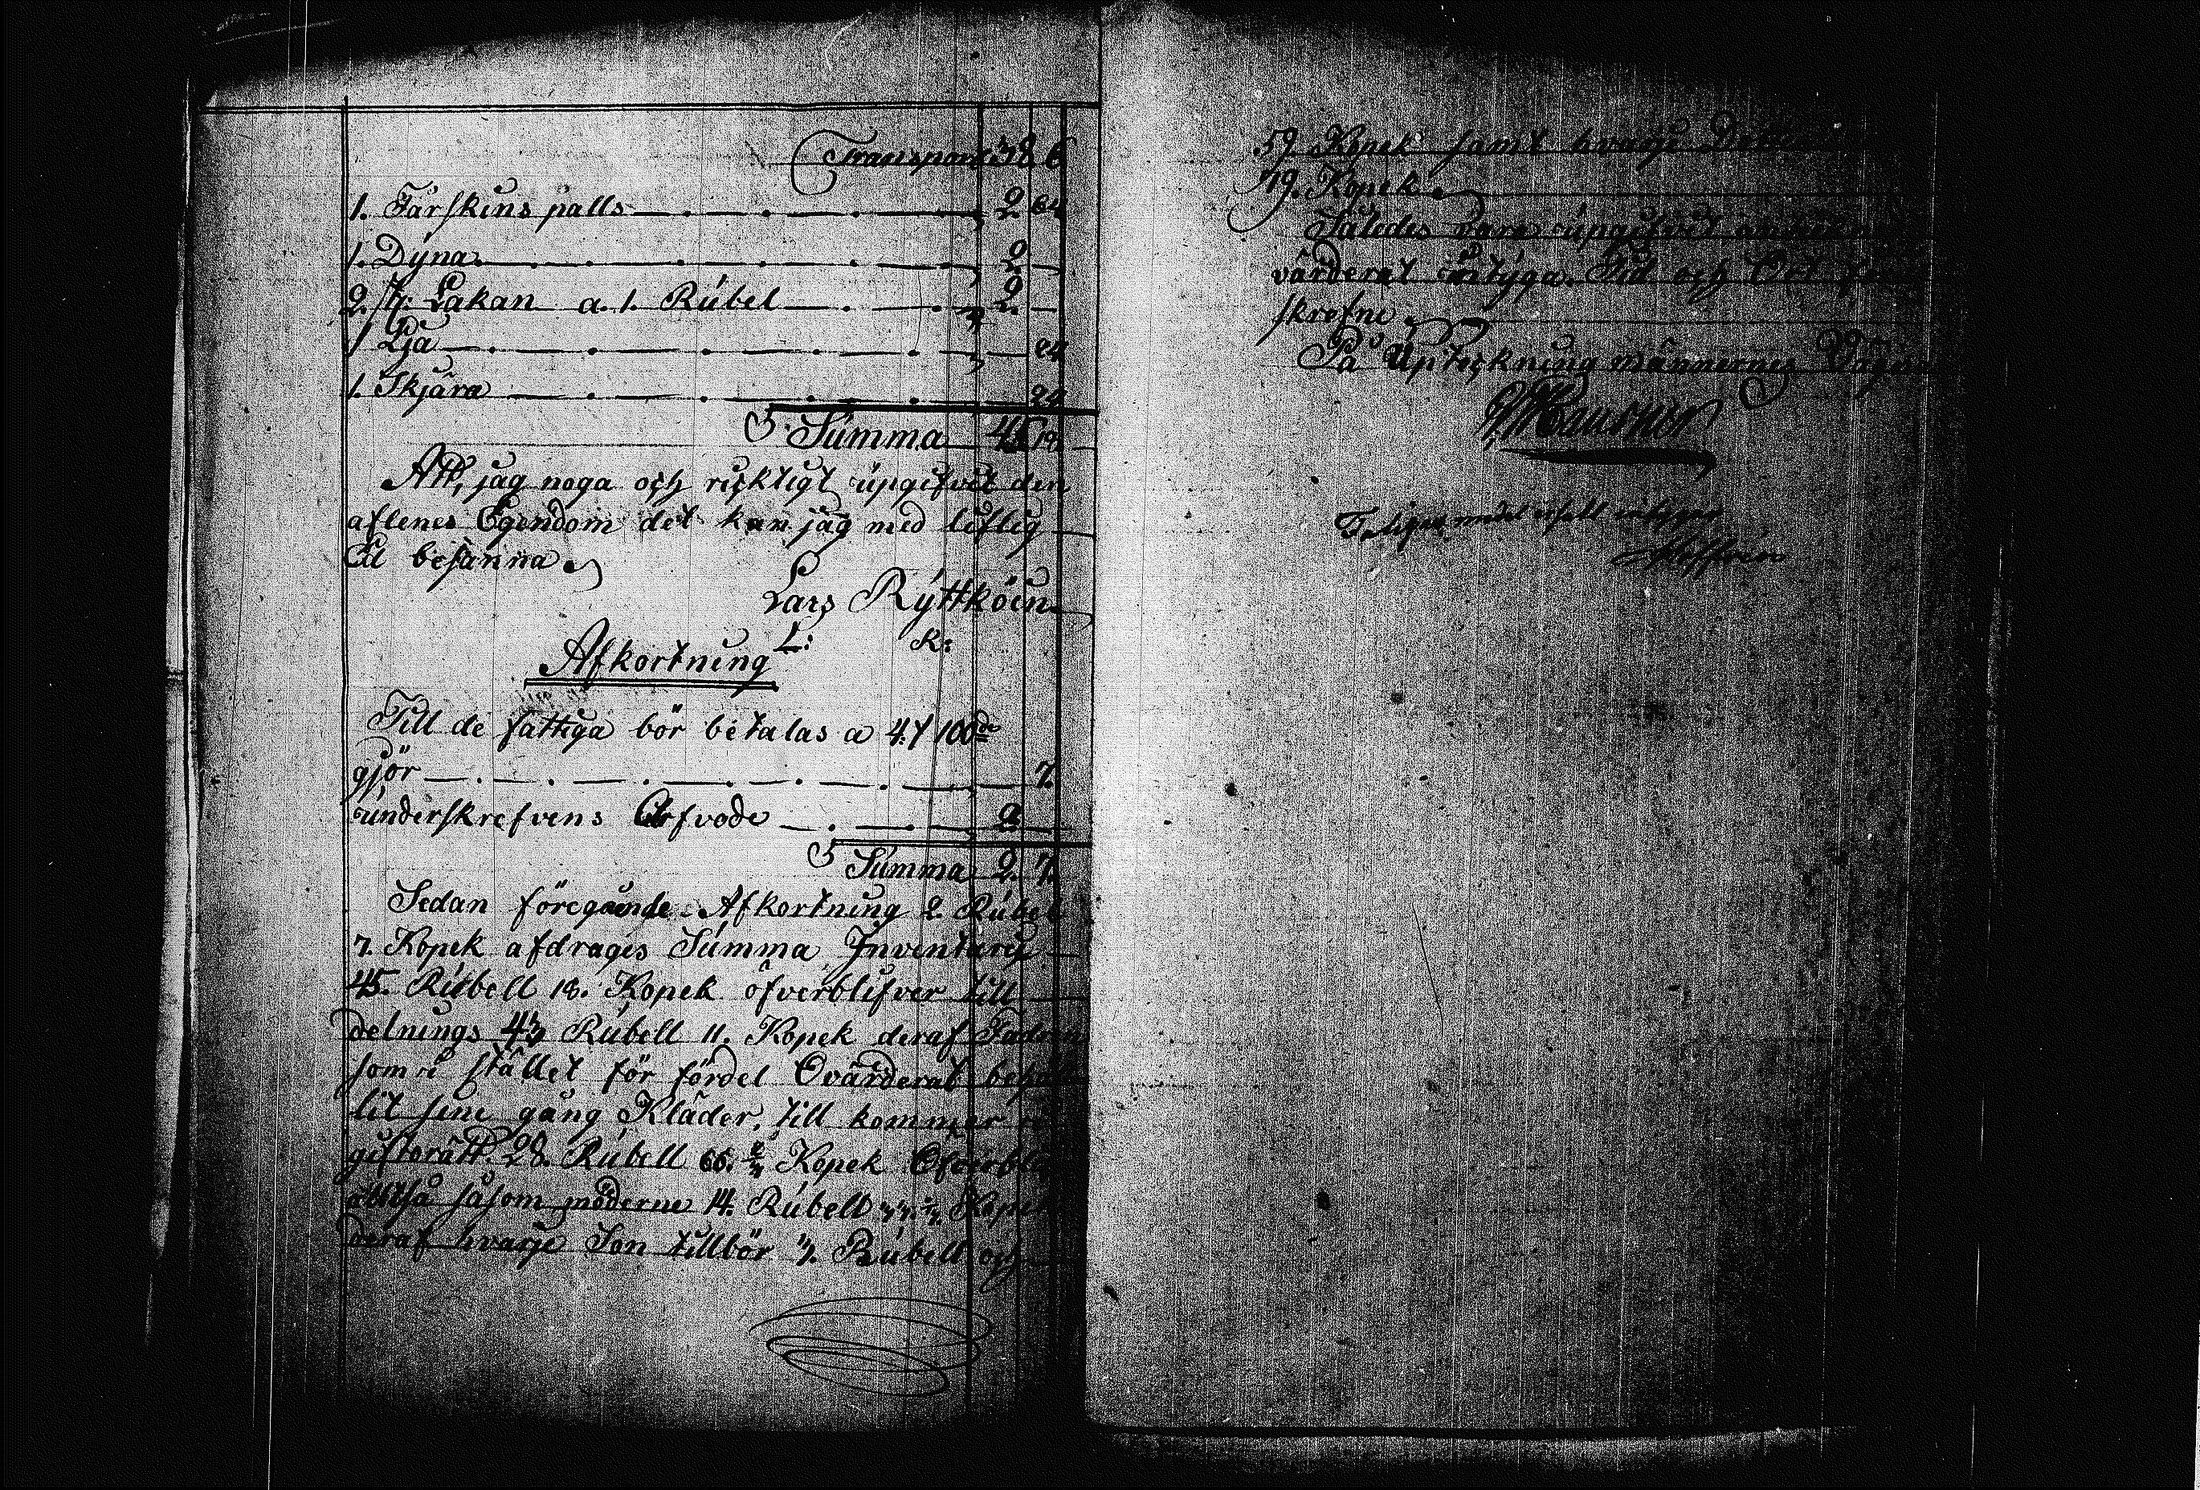 Transport 38 6
1. Fårskins palls 2 64
1. Dÿna 2 —
2. st: Lakan a. 1. Rúbel 2 —
1 Lja — 24
1. Skjära — 24
Súmma 45 18
Att, jag noga och ricktigt úpgifvit den
aflenes Egendom det kan jag med liflig
Ed besanna.
Lars Rÿttköin
L: K:
Afkortning
Till de fattiga bör betalas a 4. p 100de
gjör 7.
únderskrefvens Arfvode 2 —
Súmma 2. 7.
Sedan föregäende Afkortning 2 Rúbel
7. Kopek afdrages Súmma Inventarie
45. Rúbell 18. Kopek öfverblifver till
delnings 43 Rúbell 11. Kopek deraf Fadren
som i stället för fördel Ovärderat behål
lit sine gång Kläder, till kommer
giftorätt. 28. Rúbell 66. 2/3 Kopek Öfverbli
alltså såsom möderne 14. Rúbell Kopek
deraf hvarje Son tillbör Rúbell och
59 Kopek samt hvarje Dotter
79. Kopek
Således vara úpgifvet
värderat intÿga. Tid och Ort
skrefne
På Úpteckning männernes Vägnar